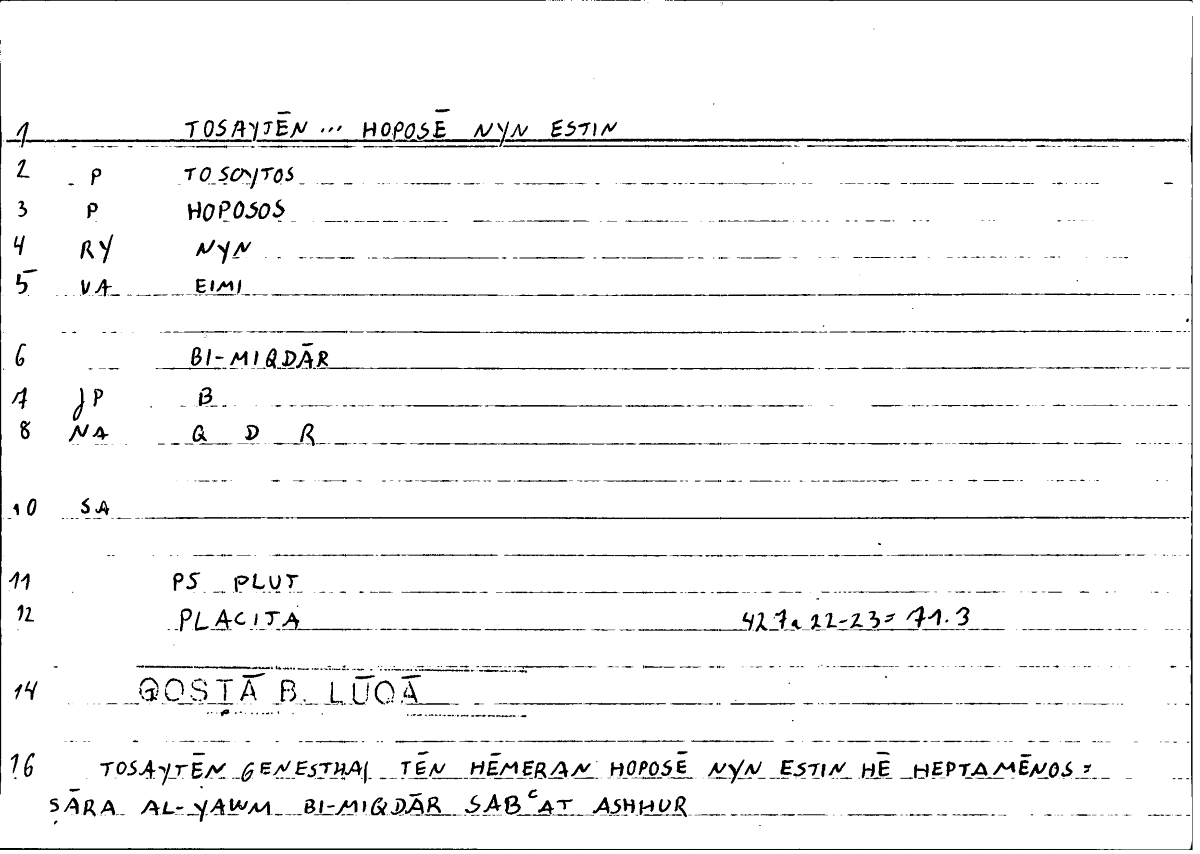 1 TOSAYTĒN ... HOPOSĒ NYN ESTIN
2 P TOSOYTOS
3 P HOPOSOS
4 RY NYN
5 VA EIMI
6 BI-MIQDĀR
7 JP B
8 NA Q D R
10 SA
11 PS PLUT
12 PLACITA 427a22-23= 71.3
14 QOSṬĀ B. LŪQĀ
16 TOSAYTĒN GENESTHAI TĒN HĒMERAN HOPOSĒ NYN ESTIN HĒ HEPTAMĒNOS =
ṢĀRA AL-YAWM BI-MIQDĀR SABᶜAT ASHHUR